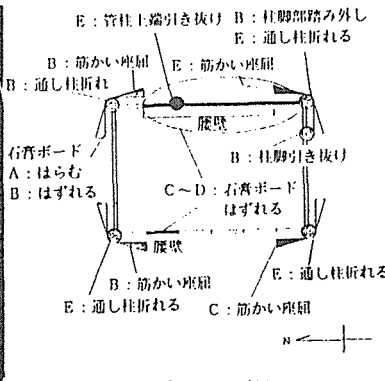 E：管柱上端引き抜け
B：柱脚部踏み外し
E：通し柱折れる
B：筋かい座屈
E：筋かい座屈
B：通し柱折れ
腰壁
石膏ボード
A：はらむ
B：はずれる
B：柱脚引き抜け
C〜D：石膏ボード
はずれる
腰壁
B：筋かい座屈
E：通し柱折れる
E：通し柱折れる
C：筋かい座屈
N